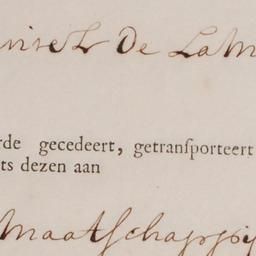 De Lam
rde gecedeert, getransporteert
ts dezen aan
Maatschappij